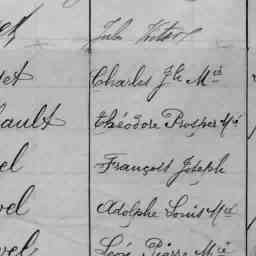 Jule Victor
Charles J.le M.ié
ault Théodore Prosper M.ié
el François Joseph
vel Adolphe Louis M.ié
vel Léon Pierre M.ié